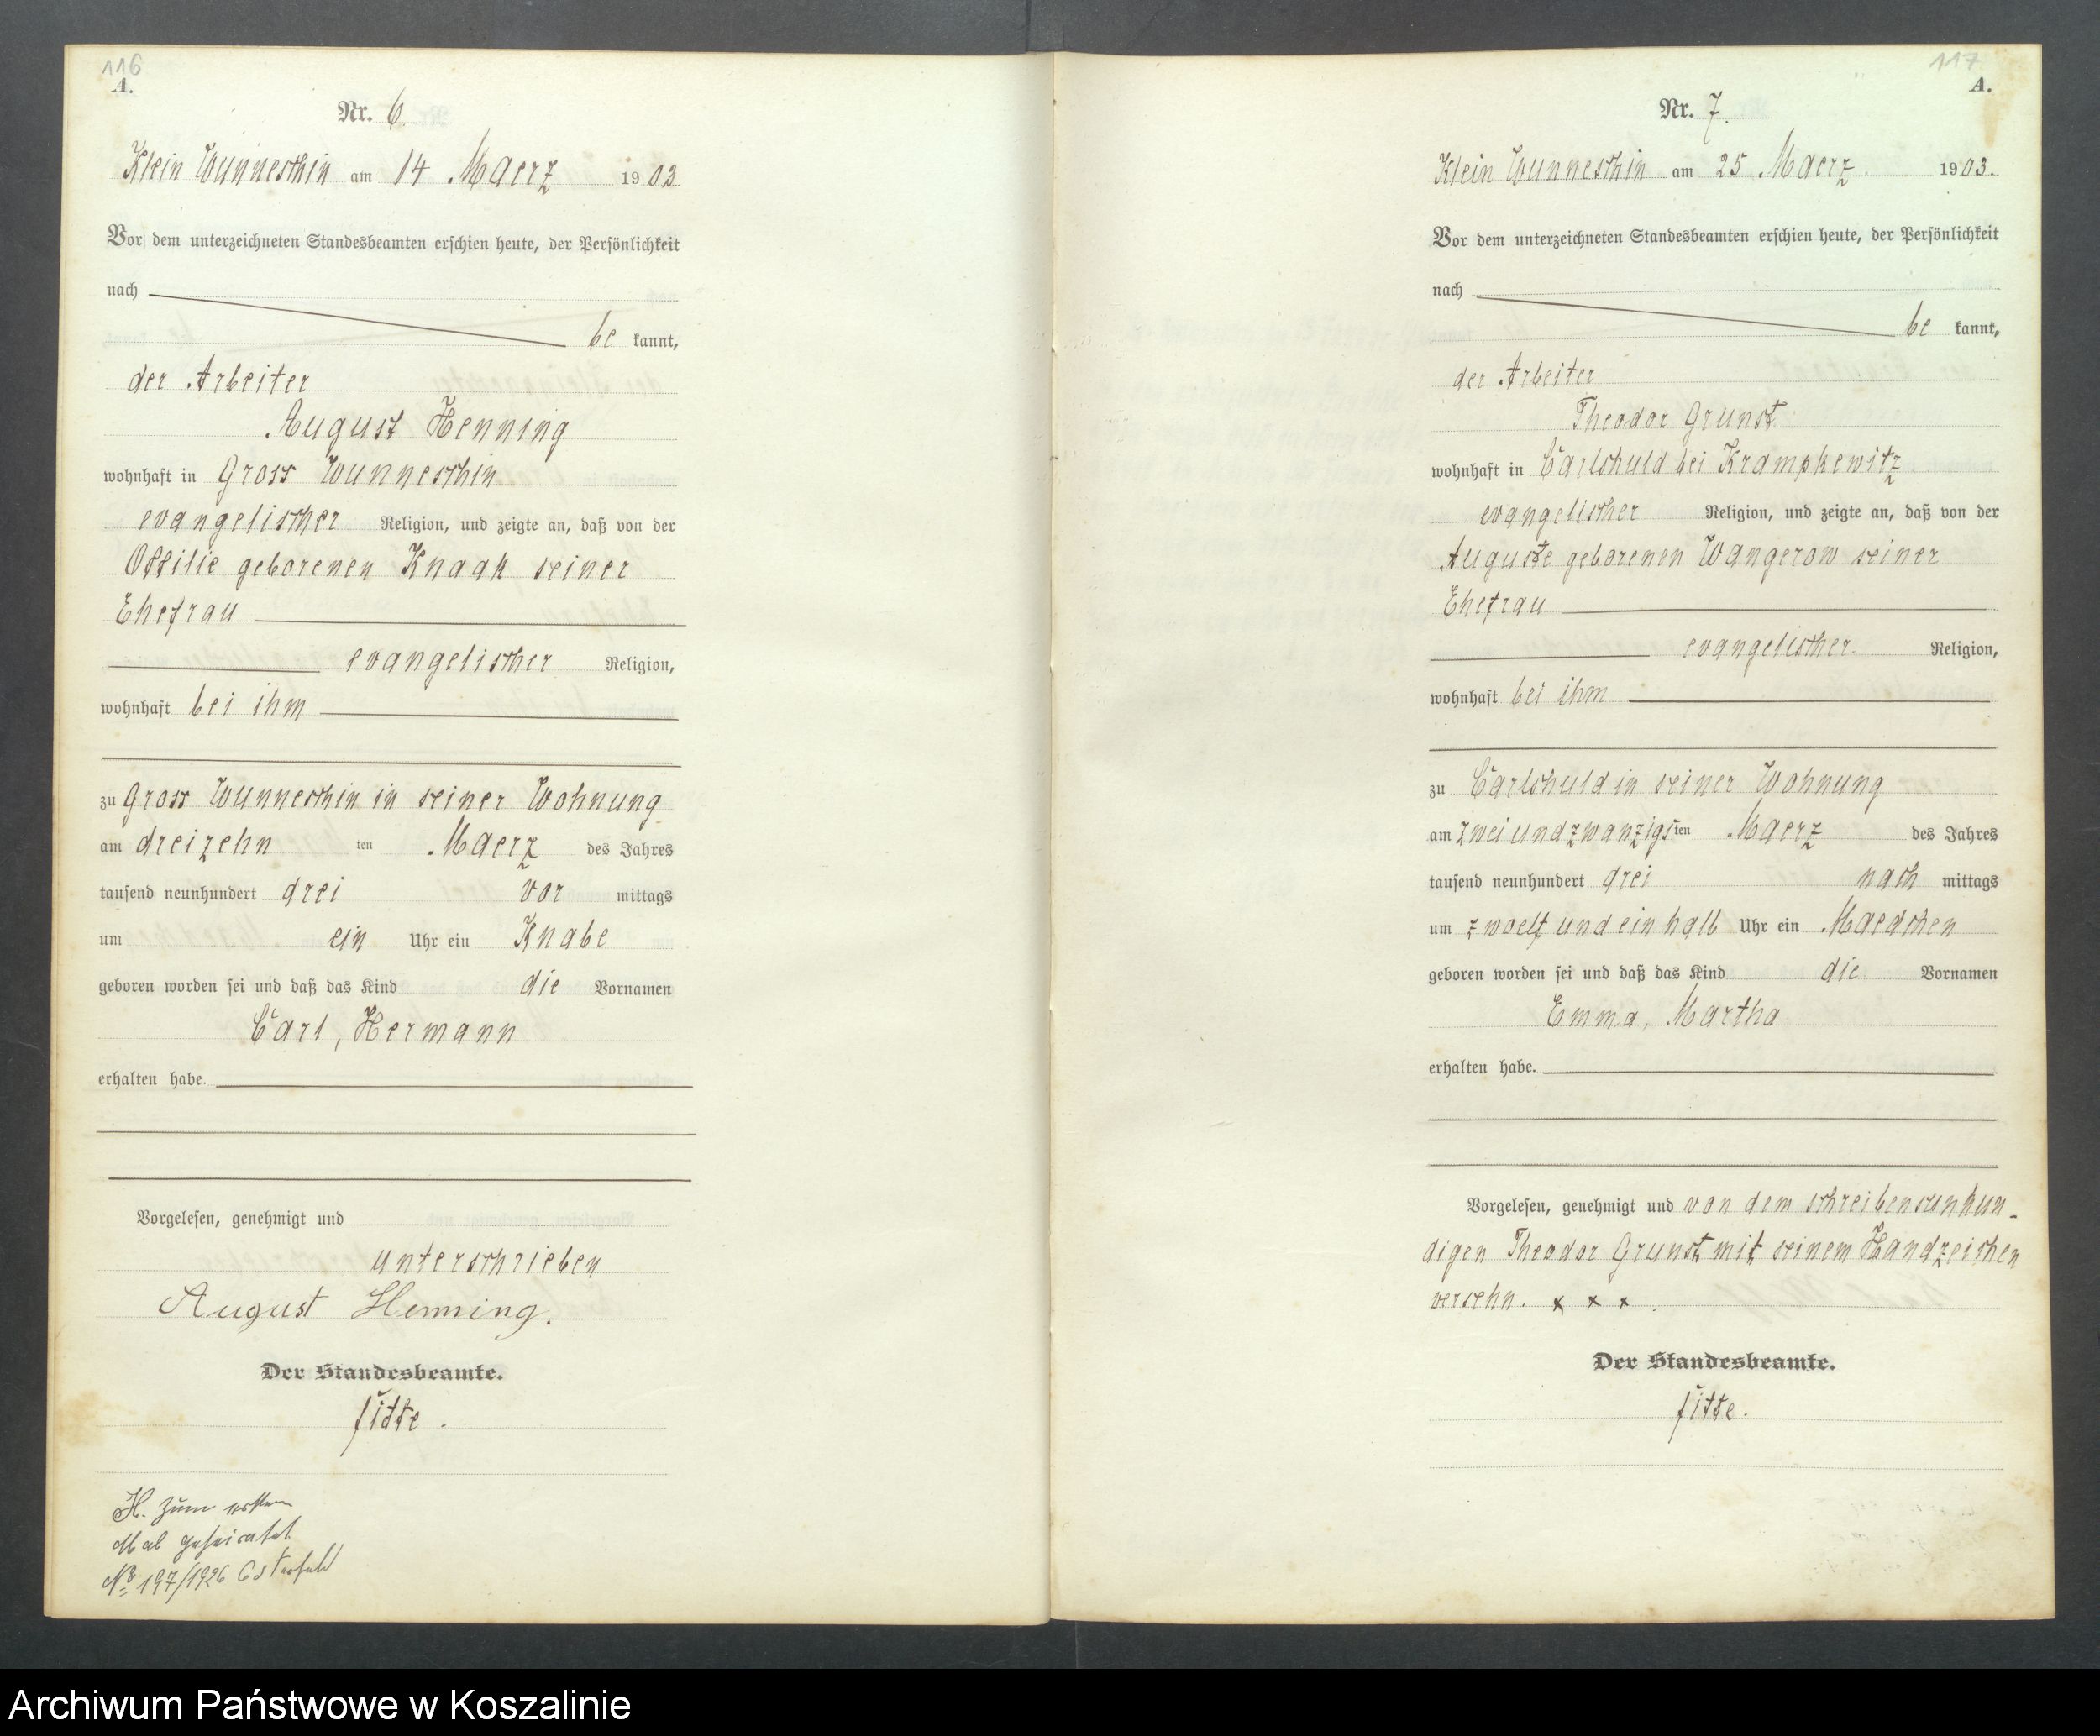 116
A.
Nr. 6.
Klein Wunneschin am 14 Maerz 1903
Vor dem unterzeichneten Standesbeamten erschien heute, der Persönlichkeit
nach
be kannt,
der Arbeiter
August Henning
wohnhaft in Gross Wunneschin
evangelischer Religion, und zeigte an, daß von der
Ottilie geborenen Knaak seiner
Ehefrau
evangelischer Religion,
wohnhaft bei ihm
zu Gross Wunneschin in seiner Wohnung
am dreizehn ten Maerz des Jahres
tausend neunhundert drei vor mittags
um ein Uhr ein Knabe
geboren worden sei und daß das Kind die Vornamen
Carl, Hermann
erhalten habe.
Vorgelesen, genehmigt und
unterschrieben
August Henning.
Der Standesbeamte.
H. zum ersten
Mal geheiratet
No 197/1926 Osterfeld
117
A.
Nr. 7.
Klein Wunneschin am 25 Maerz 1903.
Vor dem unterzeichneten Standesbeamten erschien heute, der Persönlichkeit
nach
be kannt,
der Arbeiter
Theodor Grunst
wohnhaft in Carlshuld bei Krampkewitz
evangelischer Religion, und zeigte an, daß von der
Auguste geborenen Wangerow seiner
Ehefrau
evangelischer. Religion,
wohnhaft bei ihm
zu Carlshuld in seiner Wohnung
am zweiundzwanzigsten Maerz des Jahres
tausend neunhundert drei nach mittags
um zwoelf und ein halb Uhr ein Maedchen
geboren worden sei und daß das Kind die Vornamen
Emma, Martha
erhalten habe.
Vorgelesen, genehmigt und von dem schreibensunkun-
digen Theodor Grunst mit seinem Handzeichen
versehn. x x x.
Der Standesbeamte.
Archiwum Państwowe w Koszalinie